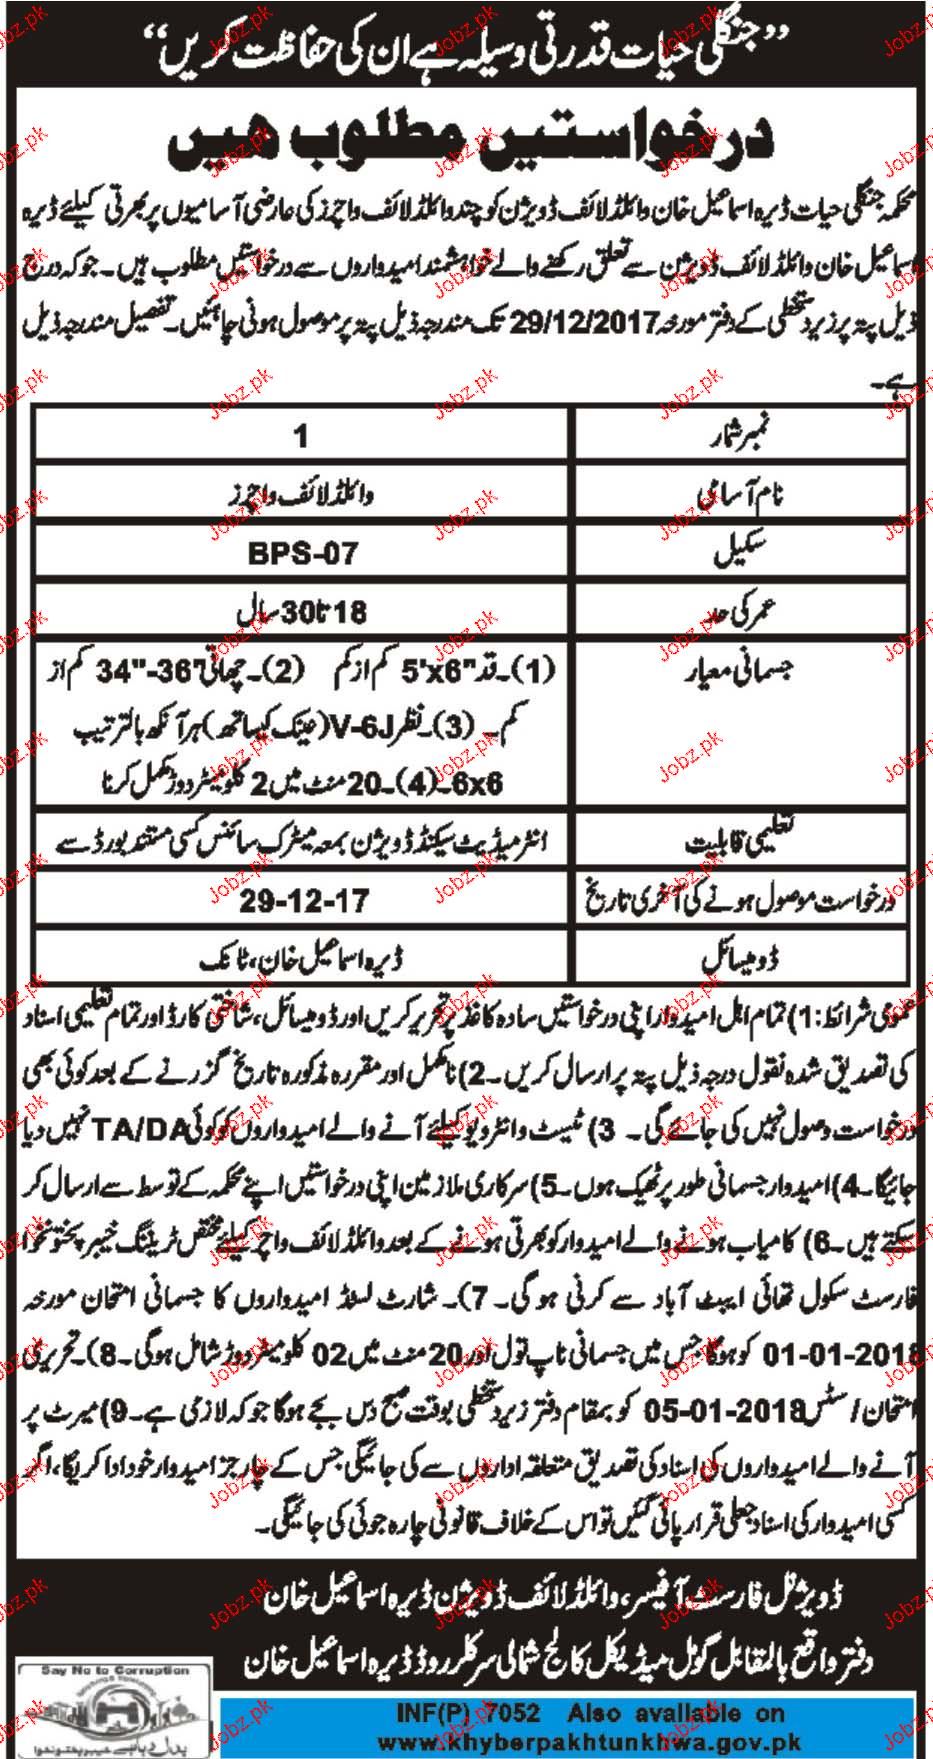 ”جنگلی حیات قدرتی وسیلہ ہے ان کی حفاظت کریں“
درخواستیں مطلوب ھیں
محکمہ جنگلی حیات ڈیرہ اسماعیل خان وائلڈ لائف ڈویژن کو چند وائلڈ لائف واچرز کی عارضی آسامیوں پر بھرتی کیلئے ڈیرہ
اسماعیل خان وائلڈ لائف ڈویژن سے تعلق رکھنے والے خواہشمند امیدواروں سے درخواستیں مطلوب ہیں۔ جو کہ درج
ذیل پتہ پر زیر دستخطی کے دفتر مورخہ 29/12/2017 تک مندرجہ ذیل پتہ پر موصول ہونی چاہئیں۔ تفصیل مندرجہ ذیل
ہے۔
نمبر شمار 1
نام آسامی وائلڈ لائف واچرز
سکیل BPS-07
عمر کی حد 18 تا 30 سال
جسمانی معیار (1)۔ قد "6x'5 کم از کم (2)۔ چھاتی "36-"34 کم از
کم۔ (3)۔ نظر V-6J (عینک کیساتھ) ہر آنکھ بالترتیب
6x6۔ (4)۔ 20 منٹ میں 2 کلومیٹر دوڑ مکمل کرنا
تعلیمی قابلیت انٹرمیڈیٹ سیکنڈ ڈویژن بمعہ میٹرک سائنس کسی مستند بورڈ سے
درخواست موصول ہونے کی آخری تاریخ 29-12-17
ڈومیسائل ڈیرہ اسماعیل خان، ٹانک
عمومی شرائط: 1) تمام اہل امیدوار اپنی درخواستیں سادہ کاغذ پر تحریر کریں اور ڈومیسائل، شناختی کارڈ اور تمام تعلیمی اسناد
کی تصدیق شدہ نقول درجہ ذیل پتہ پر ارسال کریں۔ 2) نامکمل اور مقررہ مذکورہ تاریخ گزرنے کے بعد کوئی بھی
درخواست وصول نہیں کی جائے گی۔ 3) ٹیسٹ و انٹرویو کیلئے آنے والے امیدواروں کو کوئی TA/DA نہیں دیا
جائیگا۔ 4) امیدوار جسمانی طور پر ٹھیک ہوں۔ 5) سرکاری ملازمین اپنی درخواستیں اپنے محکمہ کے توسط سے ارسال کر
سکتے ہیں۔ 6) کامیاب ہونے والے امیدوار کو بھرتی ہونے کے بعد وائلڈ لائف واچر کیلئے مختص ٹریننگ خیبر پختونخوا
فارسٹ سکول تھائی ایبٹ آباد سے کرنی ہو گی۔ 7)۔ شارٹ لسٹڈ امیدواروں کا جسمانی امتحان مورخہ
01-01-2018 کو ہوگا جس میں جسمانی ناپ تول اور 20 منٹ میں 02 کلومیٹر دوڑ شامل ہوگی۔ 8)۔ تحریری
امتحان/ سٹس 05-01-2018 کو بمقام دفتر زیر دستخطی بوقت صبح دس بجے ہوگا جو کہ لازمی ہے۔ 9) میرٹ پر
آنے والے امیدواروں کی اسناد کی تصدیق متعلقہ اداروں سے کی جائیگی جس کے چارجز امیدوار خود ادا کریگا، اگر
کسی امیدوار کی اسناد جعلی قرار پائی گئیں تو اس کے خلاف قانونی چارہ جوئی کی جائیگی۔
ڈویژنل فارسٹ آفیسر، وائلڈ لائف ڈویژن ڈیرہ اسماعیل خان
دفتر واقع بالمقابل گومل میڈیکل کالج شمالی سرکلر روڈ ڈیرہ اسماعیل خان
Say No to Corruption
INF(P) 7052 Also available on
www.khyberpakhtunkhwa.gov.pk
Jobz.pk